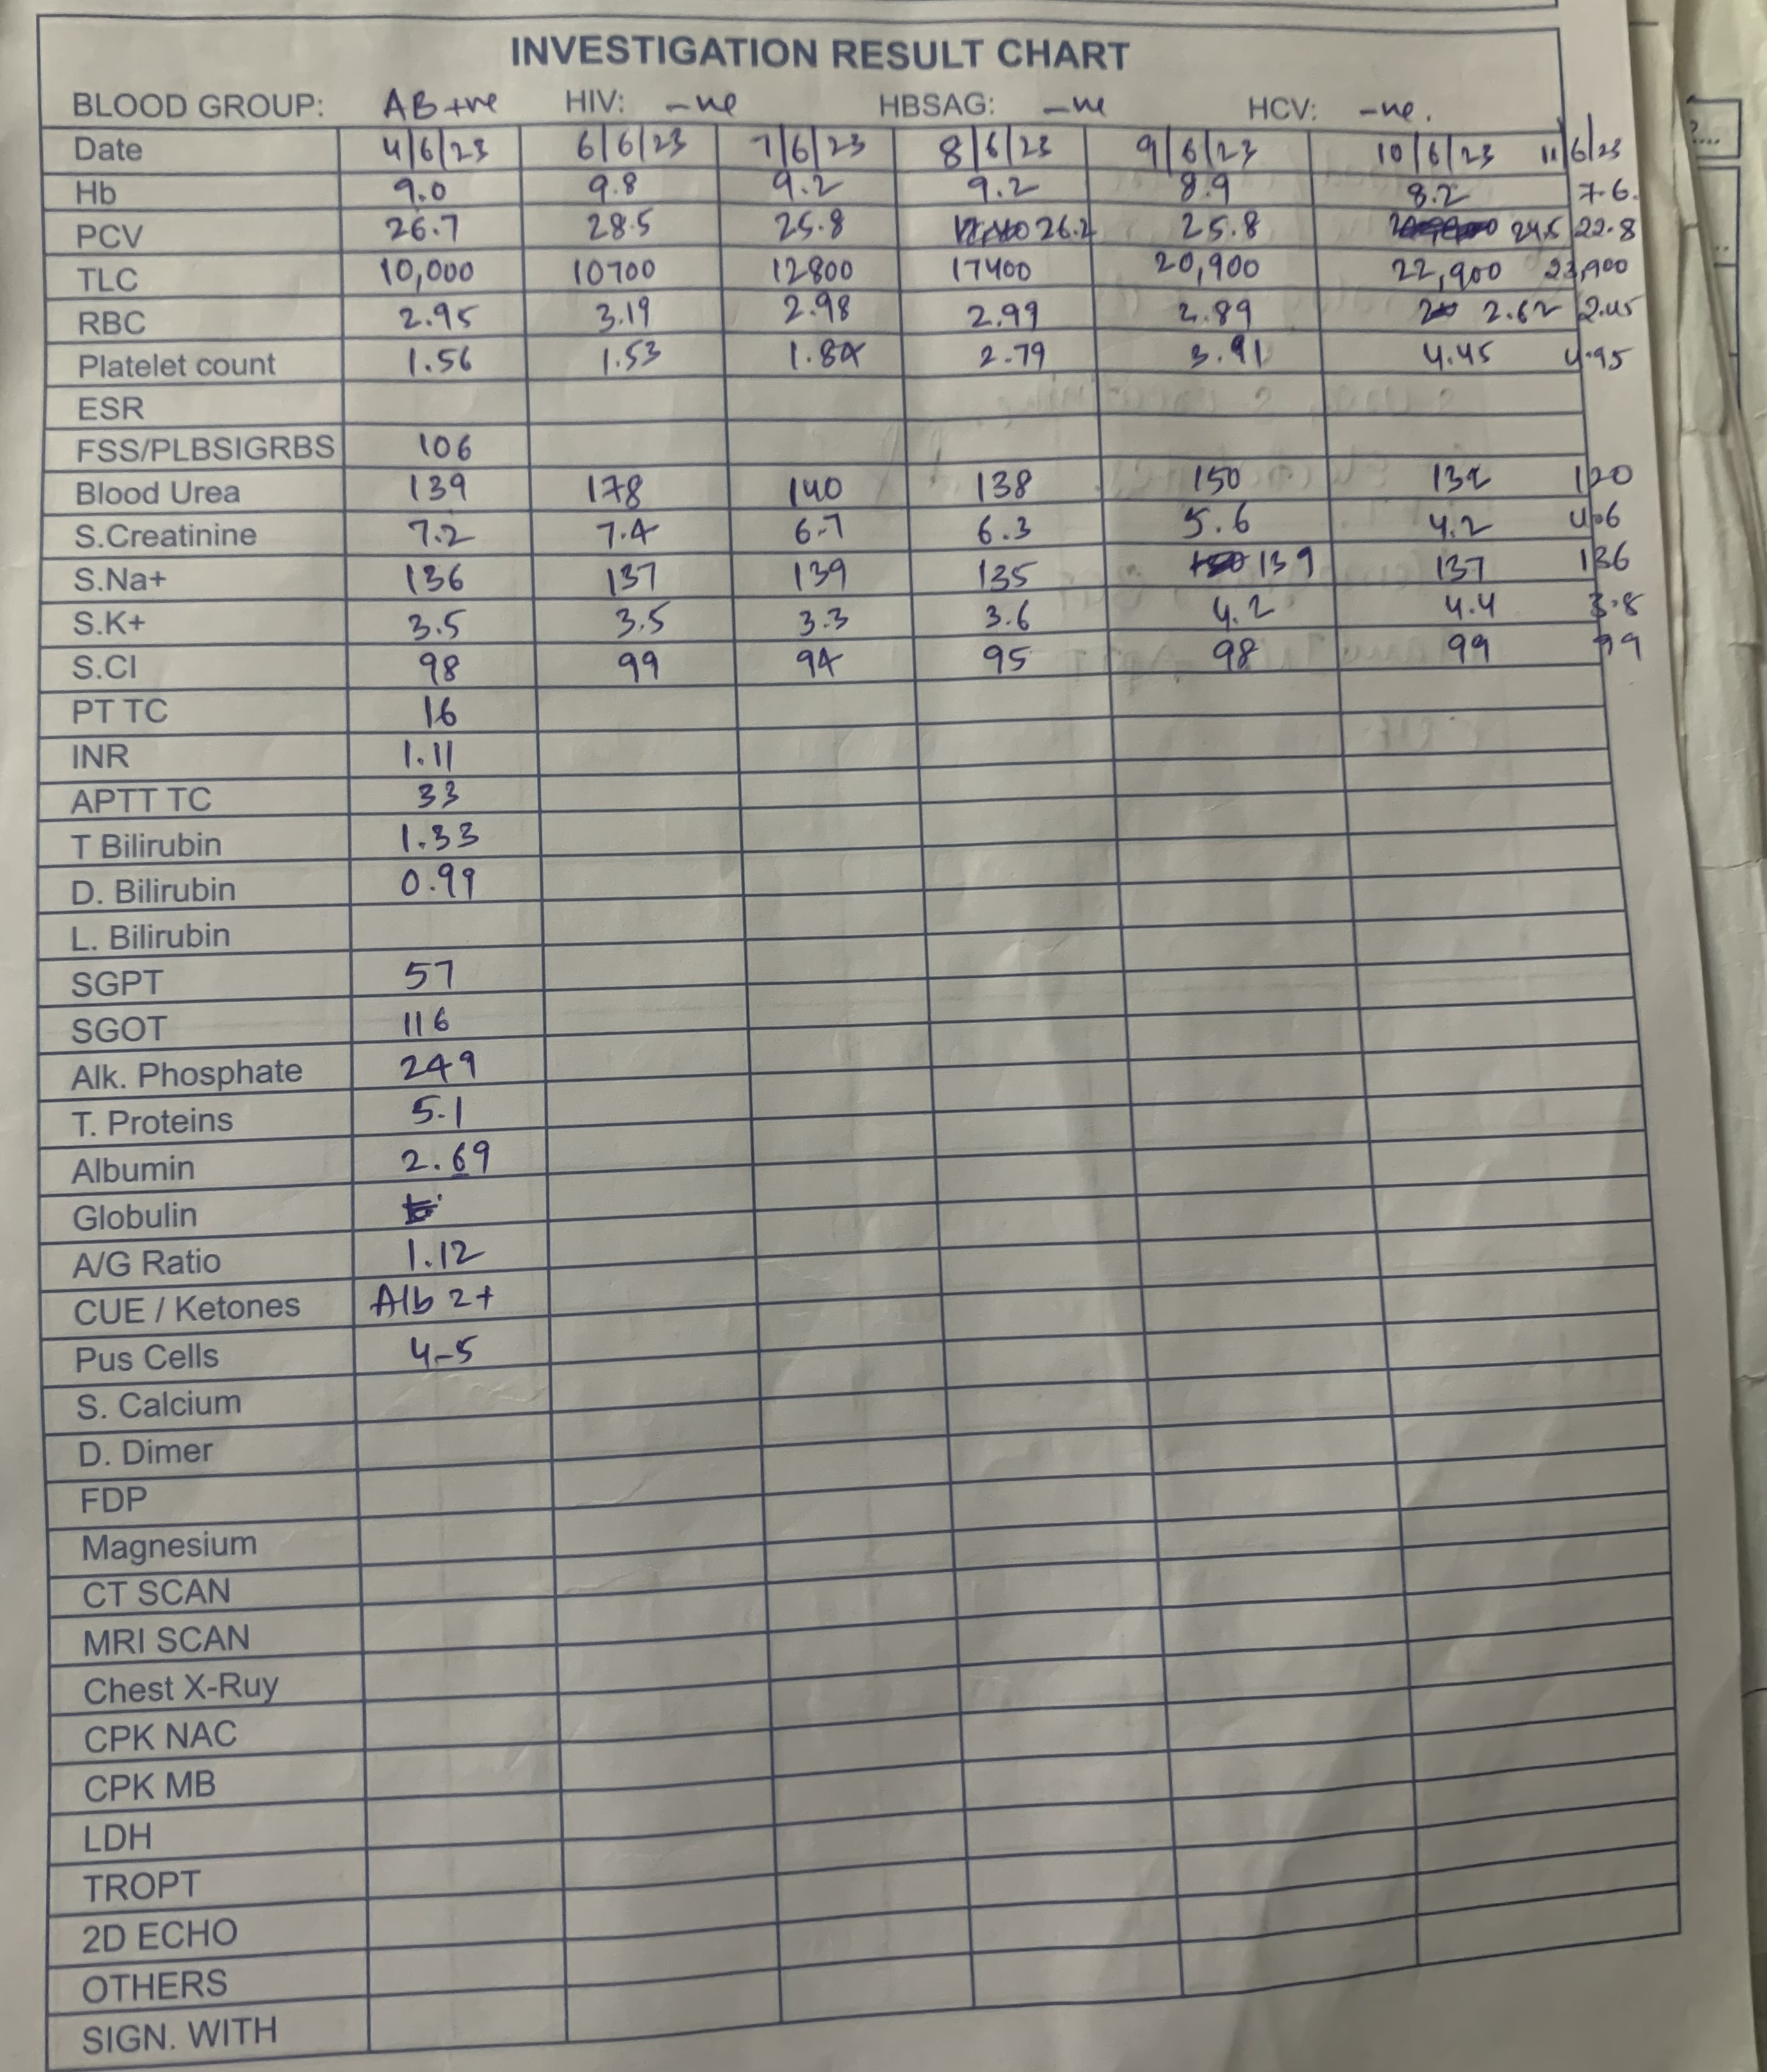 INVESTIGATION RESULT CHART
BLOOD GROUP: AB +ve HIV: -ve HBSAG: -ve HCV: -ve.
Date 4/6/23 6/6/23 7/6/23 8/6/23 9/6/23 10/6/23 11/6/23
Hb 9.0 9.8 9.2 9.2 8.9 8.2 7.6.
PCV 26.7 28.5 25.8 26.2 25.8 24.5 22.8
TLC 10,000 10700 12800 17400 20,900 22,900 23,900
RBC 2.95 3.19 2.98 2.99 2.89 2.62 2.45
Platelet count 1.56 1.53 1.84 2.79 3.91 4.45 4.95
ESR
FSS/PLBSIGRBS 106
Blood Urea 139 178 140 138 150 132 120
S.Creatinine 7.2 7.4 6.7 6.3 5.6 4.2 4.6
S.Na+ 136 137 139 135 139 137 136
S.K+ 3.5 3.5 3.3 3.6 4.2 4.4 3.8
S.CI 98 99 94 95 98 99 99
PT TC 16
INR 1.11
APTT TC 33
T Bilirubin 1.33
D. Bilirubin 0.99
L. Bilirubin
SGPT 57
SGOT 116
Alk. Phosphate 249
T. Proteins 5.1
Albumin 2.69
Globulin
A/G Ratio 1.12
CUE / Ketones Alb 2+
Pus Cells 4-5
S. Calcium
D. Dimer
FDP
Magnesium
CT SCAN
MRI SCAN
Chest X-Ruy
CPK NAC
CPK MB
LDH
TROPT
2D ECHO
OTHERS
SIGN. WITH